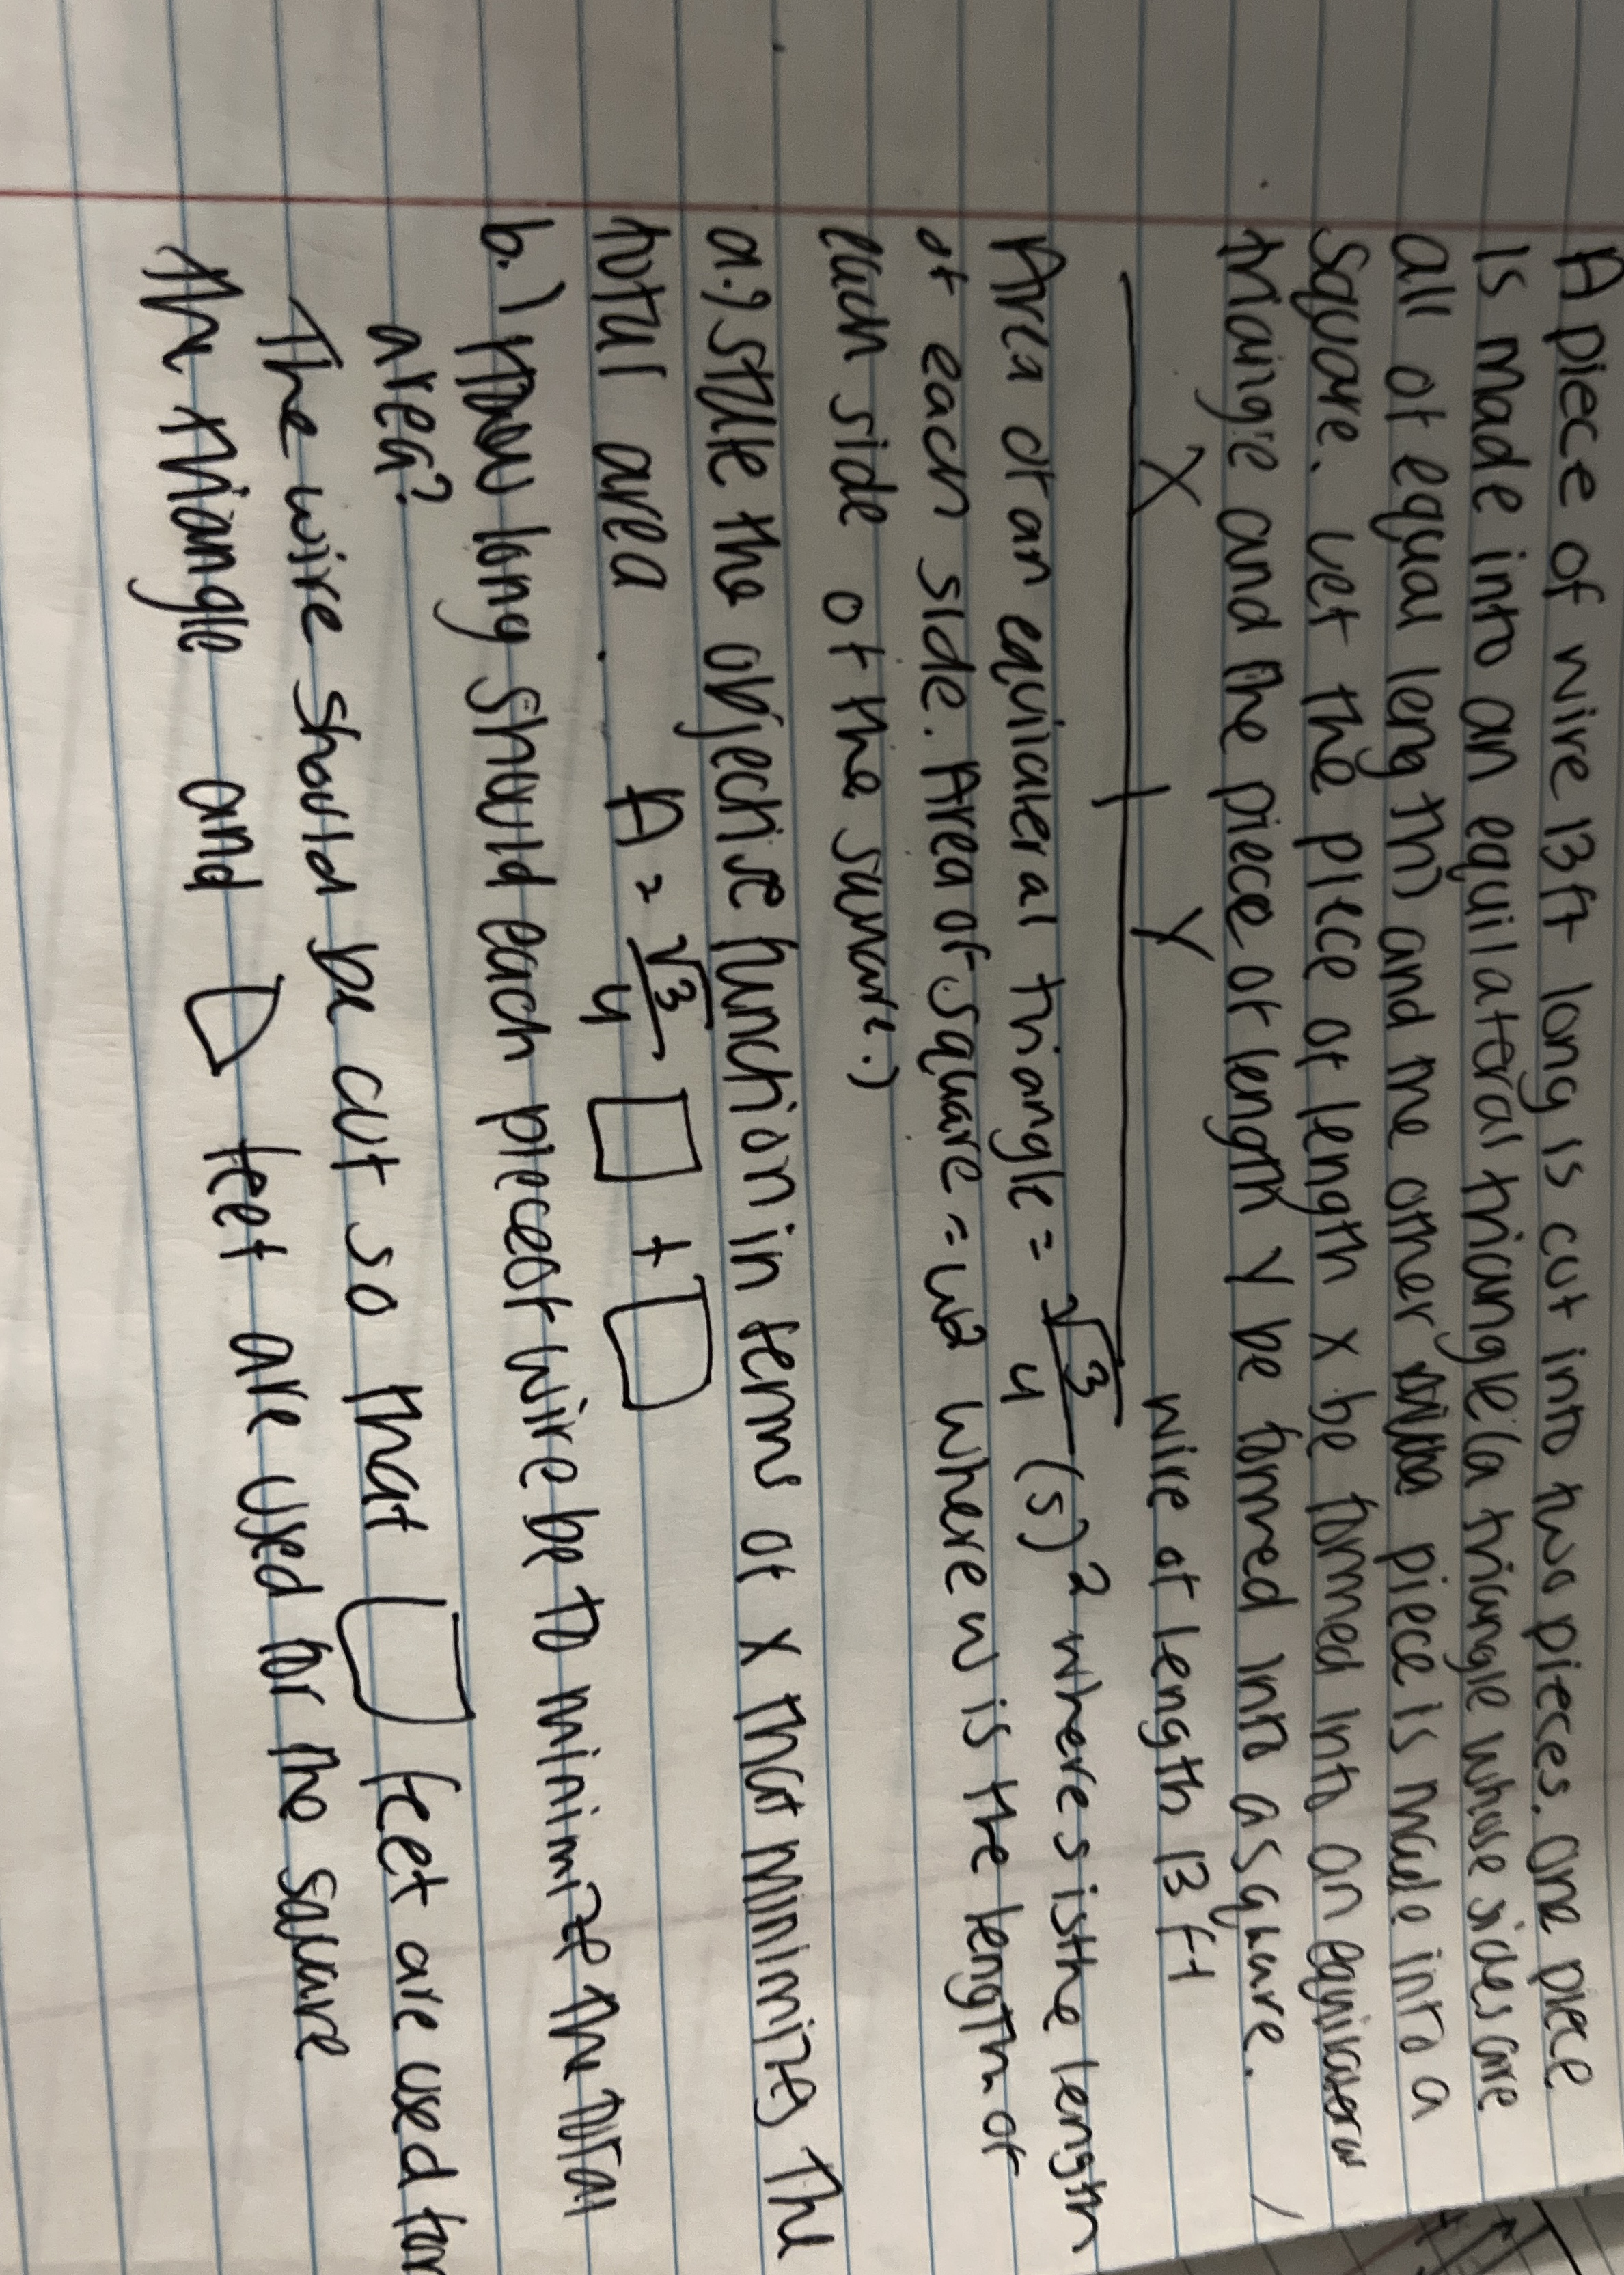 A piece of wire 13ft long is cut into two pieces. One piece
is made into an equilateral triangle (a triangle whose sides are
all of equal length) and the other piece is made into a
square. Let the piece of length x be formed into an equilateral
triangle and the piece of length y be formed into a square.
wire of length 13 ft
X Y
Area of an equilateral triangle = √3/4 (s)² where s is the length
of each side. Area of square = w² where w is the length of
each side of the square.)
a.) state the objective function in terms of x that minimizes the
total area. A = √3/4 □ + □
b.) How long should each piece of wire be to minimize the total
area?
The wire should be cut so that □ feet are used for
the triangle and □ feet are used for the square